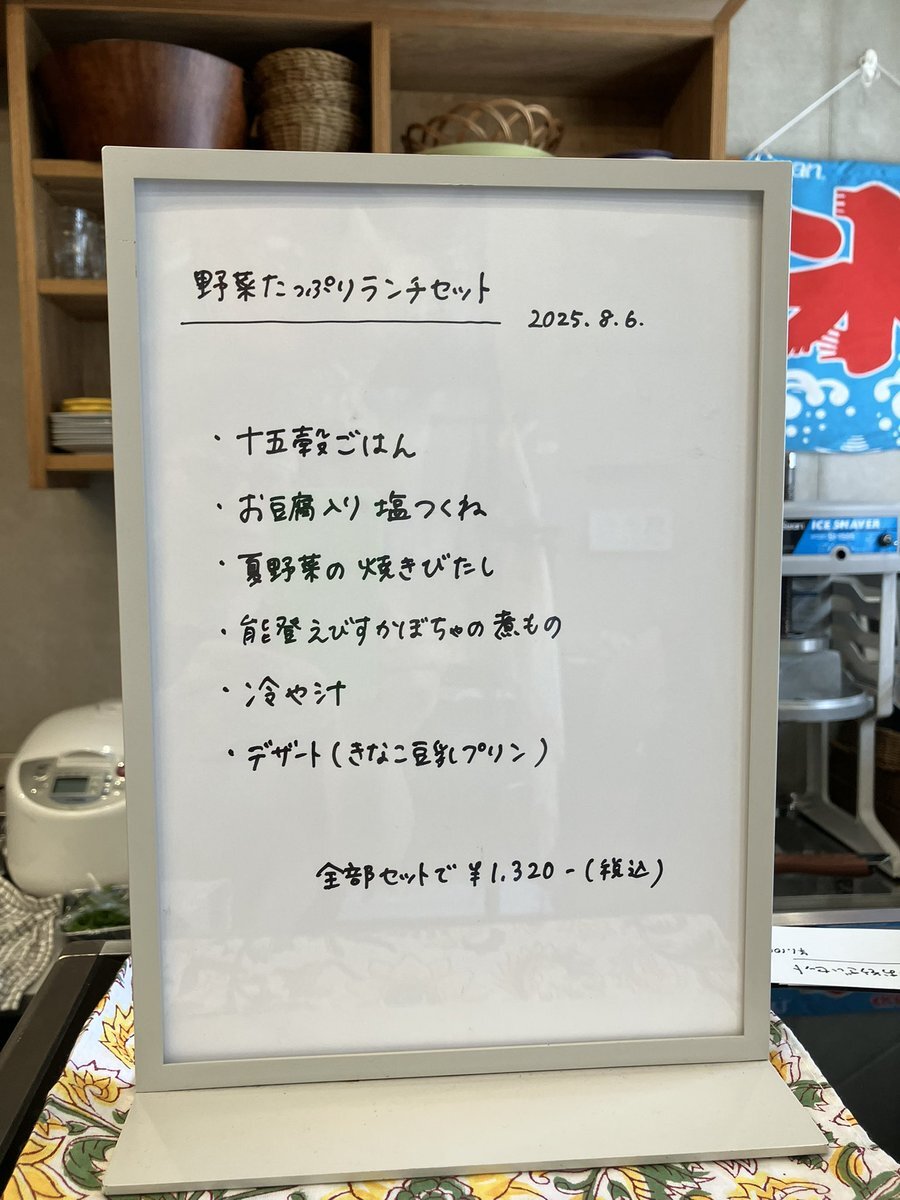 野菜たっぷりランチセット
2025.8.6.
・十五穀ごはん
・お豆腐入り 塩つくね
・夏野菜の 焼きびたし
・能登えびすかぼちゃの煮もの
・冷や汁
・デザート(きなこ豆乳プリン)
全部セットで ¥1.320-(税込)
ICE SHAVER